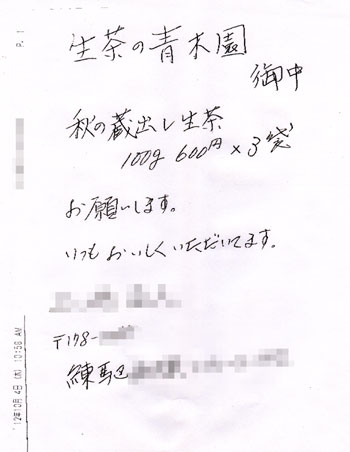 生茶の青木園
御中
秋の蔵出し生茶
100g 600円×3袋
お願いします。
いつもおいしくいただいてます。
〒178-
練馬区
P. 1
'12年10月 4日(木) 10:56 AM